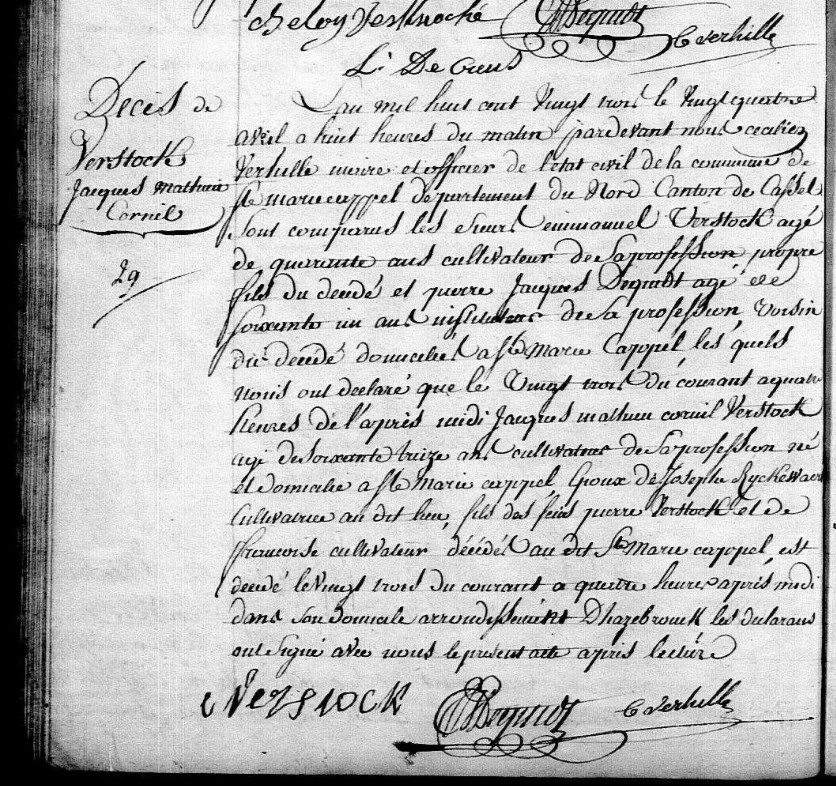 C Verhille
Décès de
Verstock
Jacques mathieu
Cornil
29
L'an mil huit cent vingt trois le vingt quatre
avril a huit heures du matin pardevant nous
Verhille maire et officier de l'etat civil de la commune de
Ste marie cappel departement du Nord Canton de Cassel
sont comparus les sieurs emmanuel Verstock agé
de quarante ans cultivateur de sa profession propre
fils du decedé et pierre Jacques Dequidt agé de
soixante un ans instituteur de sa profession voisin
du decedé domiciliés a Ste Marie Cappel les quels
nous ont declaré que le vingt trois du courant a quatre
heures de l'après midi Jacques mathieu cornil Verstock
agé de soixante treize ans cultivateur de sa profession né
et domicilié a Ste Marie cappel Epoux de Josephe Ryckewaert
Cultivatrice au dit lieu, fils des feus pierre Verstock et de
francoise cultivateur décédés au dit Ste Marie cappel, est
decedé le vingt trois du courant a quatre heures après midi
dans son domicile arrondissement D'hazebrouck les declarans
ont signé avec nous le present acte après lecture
e Verstock
Dequidt
C Verhille